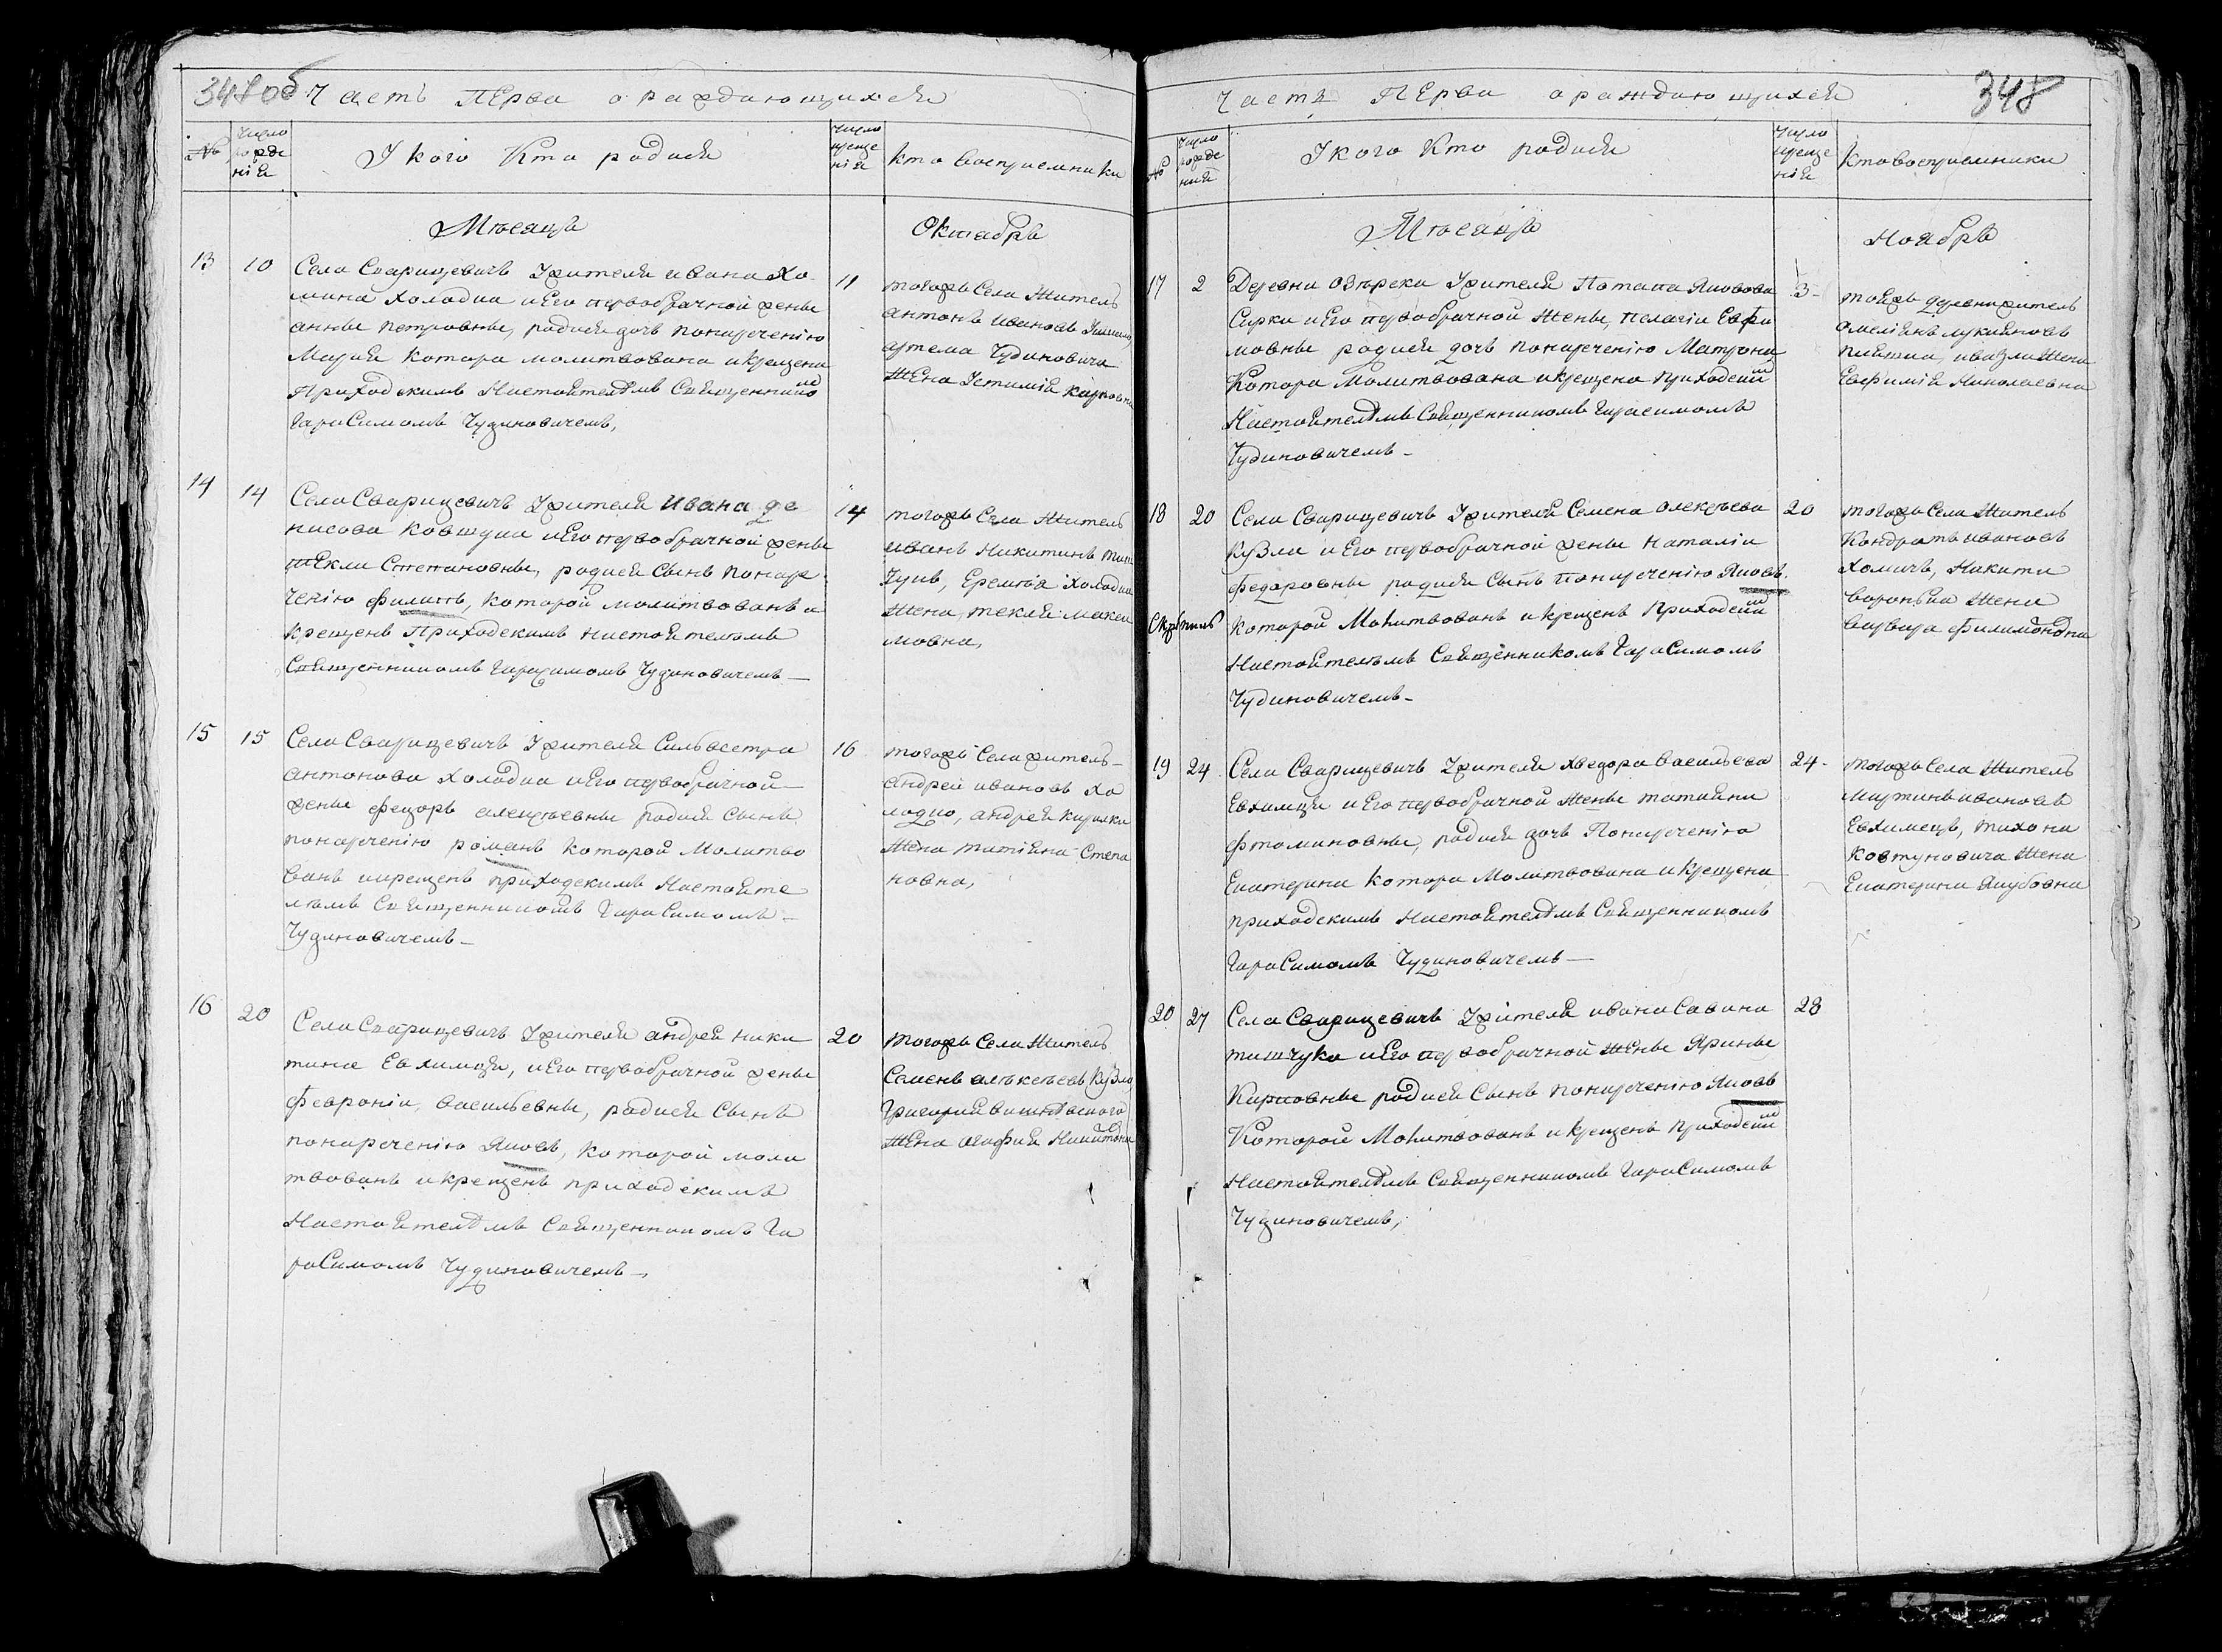 347об Часть ПЕрва о раждающихся
№
Число рожде нія
У кого Кто родися
Число креще нія
кто Восприемники
Месяца
Октабря
13 10
Села Сварицевичь Жителя ивана Хо
мина Холодка иЕго первобрачной жены
анны петровны, родися дочь понаречению
Марія котора молитвована икрещена
Приходскимъ Настоятелемъ Священнико
Гарасимомъ Чудиновичемъ,
11
тогожъ Села Житель
антонъ ивановъ
артема Чудиновича
Жена Устимія Карповна
14 14
Села Сварицевичь Жителя Ивана де
нисова Ковтуна иЕго первобрачной жены
тЕкли Степановны, родися Сынъ понаре
ченію филипъ, которой молитвованъ и
крещенъ Приходскимъ настоятелемъ
Священникомъ Гарасимомъ Чудиновичемъ
14
тогожъ Села Житель
иванъ Никитинъ тиш
чукъ, Еремѣя Холодка
Жена, текля макси
мовна,
15 15
Села Сварицевичь Жителя Сильвестра
антонова Холодка иЕго первобрачной
жены федоры алексѣевны родися Сынъ
понареченію романъ которой Молитво
ванъ икрещенъ приходскимъ Настояте
лемъ Священникомъ Гарасимомъ
Чудиновичемъ
16
тогожъ Села житель
андрей ивановъ хо
лодко, андрея кирилки
Жена татіяна Степа
новна,
16 20
Села Сварицевичь Жителя андрея ники
тина Евхимца, иЕго первобрачной жены
Февроніи, васильевны, родися Сынъ
понареченію Яковъ, которой моли
твованъ икрещенъ приходскимъ
Настоятелемъ Священникомъ Га
расимомъ Чудиновичемъ
20
тогожъ Села Житель
Семенъ алексѣевъ Кузло
Григорія вишневского
Жена агафия Никитовна
348
Часть ПЕрва о раждающихся
№
Число рожде ния
У кого Кто родися
Число креще нія
Кто восприемники
Месяца
Ноябрь
17 2
Деревни Озѣрска Жителя Потапа Яковова
Сирка иЕго первобрачной Жены, пелагіи Евфи
мовны родися дочь понареченію Матрона,
Котора Молитвована икрещена приходским
Настоятелемъ Священникомъ Гарасимомъ
Чудиновичемъ
3
тойжъ деревни житель
Омеліянъ лукяновъ
ивагли Жена
Евфимія Николаевна
18 20
Села Сварицевичь Жителя Семена алексѣева
Кузла иЕго первобрачной жены Наталіи
федоровны родися Сынъ понареченію Яковъ.
Скрѣпилъ
которой Молитвованъ икрещенъ приходским
Настоятелемъ Священникомъ Гарасимомъ
Чудиновичемъ
20
тогожъ Села Житель
Кондратъ ивановъ
Хомичъ, Никити
воронька Жена
варвара Филимоновна
19 24
Села Сварицевичь Жителя хведора васильева
Евхимца иЕго первобрачной Жены татияни
фтомиковны, родися дочь Понареченію
Екатерина Котора Молитвована икрещена
приходскимъ Настоятелемъ Священникомъ
Гарасимомъ Чудиновичемъ
24
тогожъ Села Житель
Мартинъ ивановъ
Евхимецъ, тихона
Ковтуновича Жена
Екатерина Якубовна
20 27
Села Сварицевичь Жителя ивана Савина
тишчука иЕго первобрачной Жены Ярины
Карповны родися Сынъ понареченію Яковъ
Которой Молитвованъ икрещенъ приходским
Настоятелемъ Священникомъ Гарасимомъ
Чудиновичемъ,
28